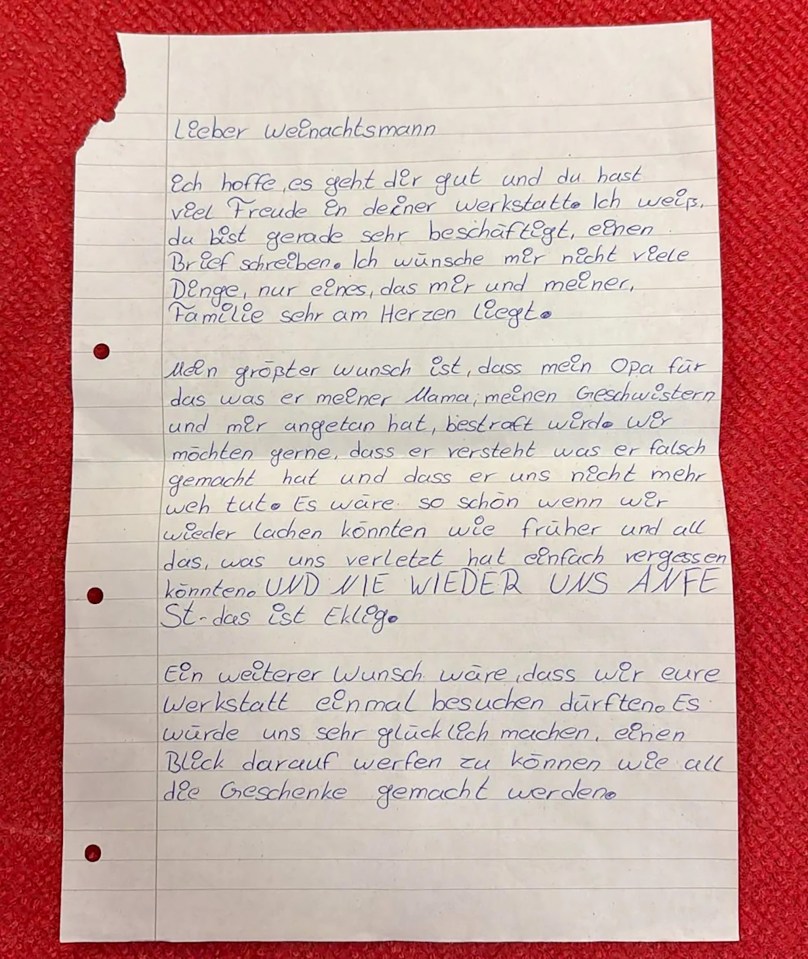 Lieber Weinachtsmann
Ich hoffe, es geht dir gut und du hast
viel Freude in deiner Werkstatt. Ich weiß,
du bist gerade sehr beschäftigt, einen
Brief schreiben. Ich wünsche mir nicht viele
Dinge, nur eines, das mir und meiner,
Familie sehr am Herzen liegt.
Mein größter wunsch ist, dass mein Opa für
das was er meiner Mama, meinen Geschwistern
und mir angetan hat, bestraft wird. Wir
möchten gerne, dass er versteht was er falsch
gemacht hat und dass er uns nicht mehr
weh tut. Es wäre so schön wenn wir
wieder lachen könnten wie früher und all
das, was uns verletzt hat einfach vergessen
könnten. UND NIE WIEDER UNS ANFE
St-das ist Eklig.
Ein weiterer Wunsch wäre, dass wir eure
Werkstatt einmal besuchen dürften. Es
würde uns sehr glücklich machen, einen
Blick darauf werfen zu können wie all
die Geschenke gemacht werden.